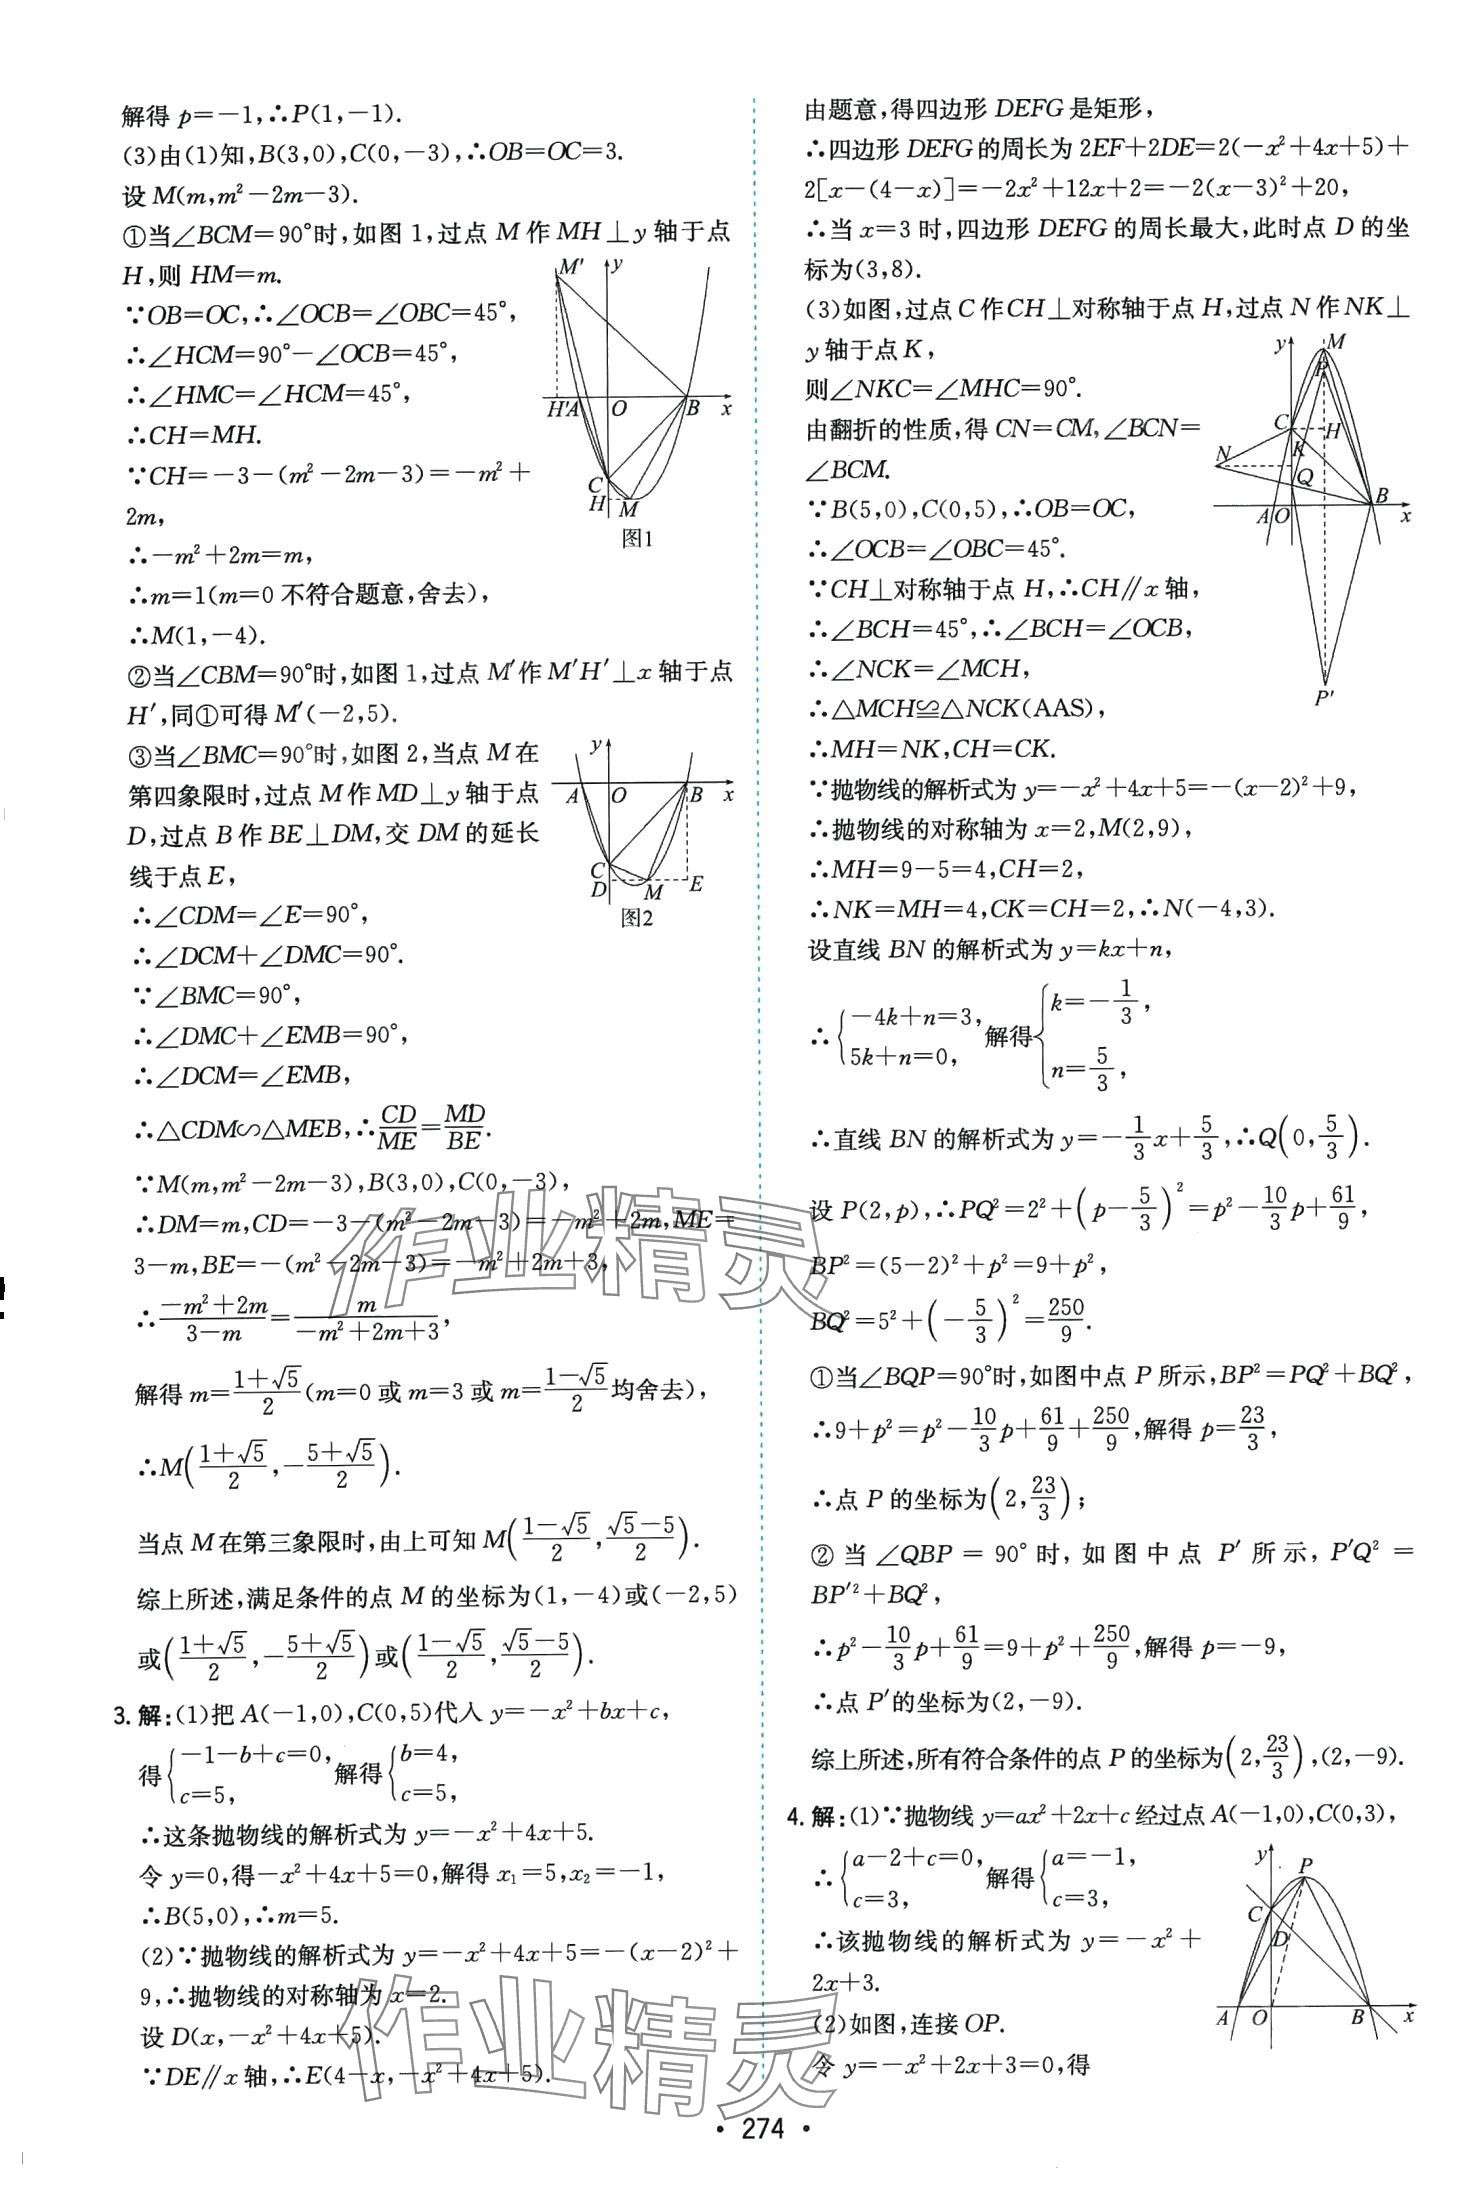 解得 p=-1,∴P(1,-1).
(3)由(1)知,B(3,0),C(0,-3),∴OB=OC=3.
设 M(m,m²-2m-3).
①当∠BCM=90°时,如图1,过点 M 作 MH⊥y 轴于点
H,则 HM=m.
∵OB=OC,∴∠OCB=∠OBC=45°,
∴∠HCM=90°-∠OCB=45°,
∴∠HMC=∠HCM=45°,
∴CH=MH.
∵CH=-3-(m²-2m-3)=-m²+
2m,
∴-m²+2m=m,
∴m=1(m=0 不符合题意,舍去),
∴M(1,-4).
M′ y
H′ A O B x
C
H M
图1
②当∠CBM=90°时,如图1,过点 M′作 M′H′⊥x 轴于点
H′,同①可得 M′(-2,5).
③当∠BMC=90°时,如图2,当点 M 在
第四象限时,过点 M 作 MD⊥y 轴于点
D,过点 B 作 BE⊥DM,交 DM 的延长
线于点 E,
y
A O B x
C
D M E
图2
∴∠CDM=∠E=90°,
∴∠DCM+∠DMC=90°.
∵∠BMC=90°,
∴∠DMC+∠EMB=90°,
∴∠DCM=∠EMB,
∴△CDM∽△MEB,∴CD/ME=MD/BE.
∵M(m,m²-2m-3),B(3,0),C(0,-3),
∴DM=m,CD=-3-(m²-2m-3)=-m²+2m,ME=
3-m,BE=-(m²-2m-3)=-m²+2m+3,
∴(-m²+2m)/(3-m)=m/(-m²+2m+3),
解得 m=(1+√5)/2(m=0 或 m=3 或 m=(1-√5)/2均舍去),
∴M((1+√5)/2,-(5+√5)/2).
当点 M 在第三象限时,由上可知 M((1-√5)/2,(√5-5)/2).
综上所述,满足条件的点 M 的坐标为(1,-4)或(-2,5)
或((1+√5)/2,-(5+√5)/2)或((1-√5)/2,(√5-5)/2).
3. 解:(1)把 A(-1,0),C(0,5)代入 y=-x²+bx+c,
得{-1-b+c=0, c=5, 解得{b=4, c=5,
∴这条抛物线的解析式为 y=-x²+4x+5.
令 y=0,得-x²+4x+5=0,解得 x₁=5,x₂=-1,
∴B(5,0),∴m=5.
(2)∵抛物线的解析式为 y=-x²+4x+5=-(x-2)²+
9,∴抛物线的对称轴为 x=2.
设 D(x,-x²+4x+5).
∵DE∥x 轴,∴E(4-x,-x²+4x+5).
由题意,得四边形 DEFG 是矩形,
∴四边形 DEFG 的周长为 2EF+2DE=2(-x²+4x+5)+
2[x-(4-x)]=-2x²+12x+2=-2(x-3)²+20,
∴当 x=3 时,四边形 DEFG 的周长最大,此时点 D 的坐
标为(3,8).
(3)如图,过点 C 作 CH⊥对称轴于点 H,过点 N 作 NK⊥
y 轴于点 K,
则∠NKC=∠MHC=90°.
由翻折的性质,得 CN=CM,∠BCN=
∠BCM.
∵B(5,0),C(0,5),∴OB=OC,
∴∠OCB=∠OBC=45°.
∵CH⊥对称轴于点 H,∴CH∥x 轴,
∴∠BCH=45°,∴∠BCH=∠OCB,
∴∠NCK=∠MCH,
∴△MCH≌△NCK(AAS),
∴MH=NK,CH=CK.
y M
P
C H
N K
Q B
A O x
P′
∵抛物线的解析式为 y=-x²+4x+5=-(x-2)²+9,
∴抛物线的对称轴为 x=2,M(2,9),
∴MH=9-5=4,CH=2,
∴NK=MH=4,CK=CH=2,∴N(-4,3).
设直线 BN 的解析式为 y=kx+n,
∴{-4k+n=3, 5k+n=0, 解得{k=-1/3, n=5/3,
∴直线 BN 的解析式为 y=-1/3x+5/3,∴Q(0,5/3).
设 P(2,p),∴PQ²=2²+(p-5/3)²=p²-10/3p+61/9,
BP²=(5-2)²+p²=9+p²,
BQ²=5²+(-5/3)²=250/9.
①当∠BQP=90°时,如图中点 P 所示,BP²=PQ²+BQ²,
∴9+p²=p²-10/3p+61/9+250/9,解得 p=23/3,
∴点 P 的坐标为(2,23/3);
②当∠QBP=90°时,如图中点 P′所示,P′Q²=
BP′²+BQ²,
∴p²-10/3p+61/9=9+p²+250/9,解得 p=-9,
∴点 P′的坐标为(2,-9).
综上所述,所有符合条件的点 P 的坐标为(2,23/3),(2,-9).
4. 解:(1)∵抛物线 y=ax²+2x+c 经过点 A(-1,0),C(0,3),
∴{a-2+c=0, c=3, 解得{a=-1, c=3,
∴该抛物线的解析式为 y=-x²+
2x+3.
(2)如图,连接 OP.
令 y=-x²+2x+3=0,得
y P
C
D
A O B x
作业精灵
作业精灵
· 274 ·